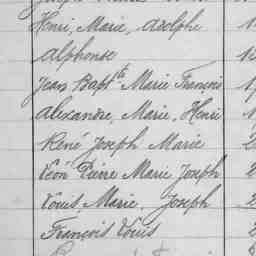 Henri, Marie, Adolphe
Alphonse
Jean Bapt^te Marie François
Alexandre, Marie, Henri
René Joseph Marie
Léon Pierre Marie Joseph
Louis, Marie, Joseph
François Louis